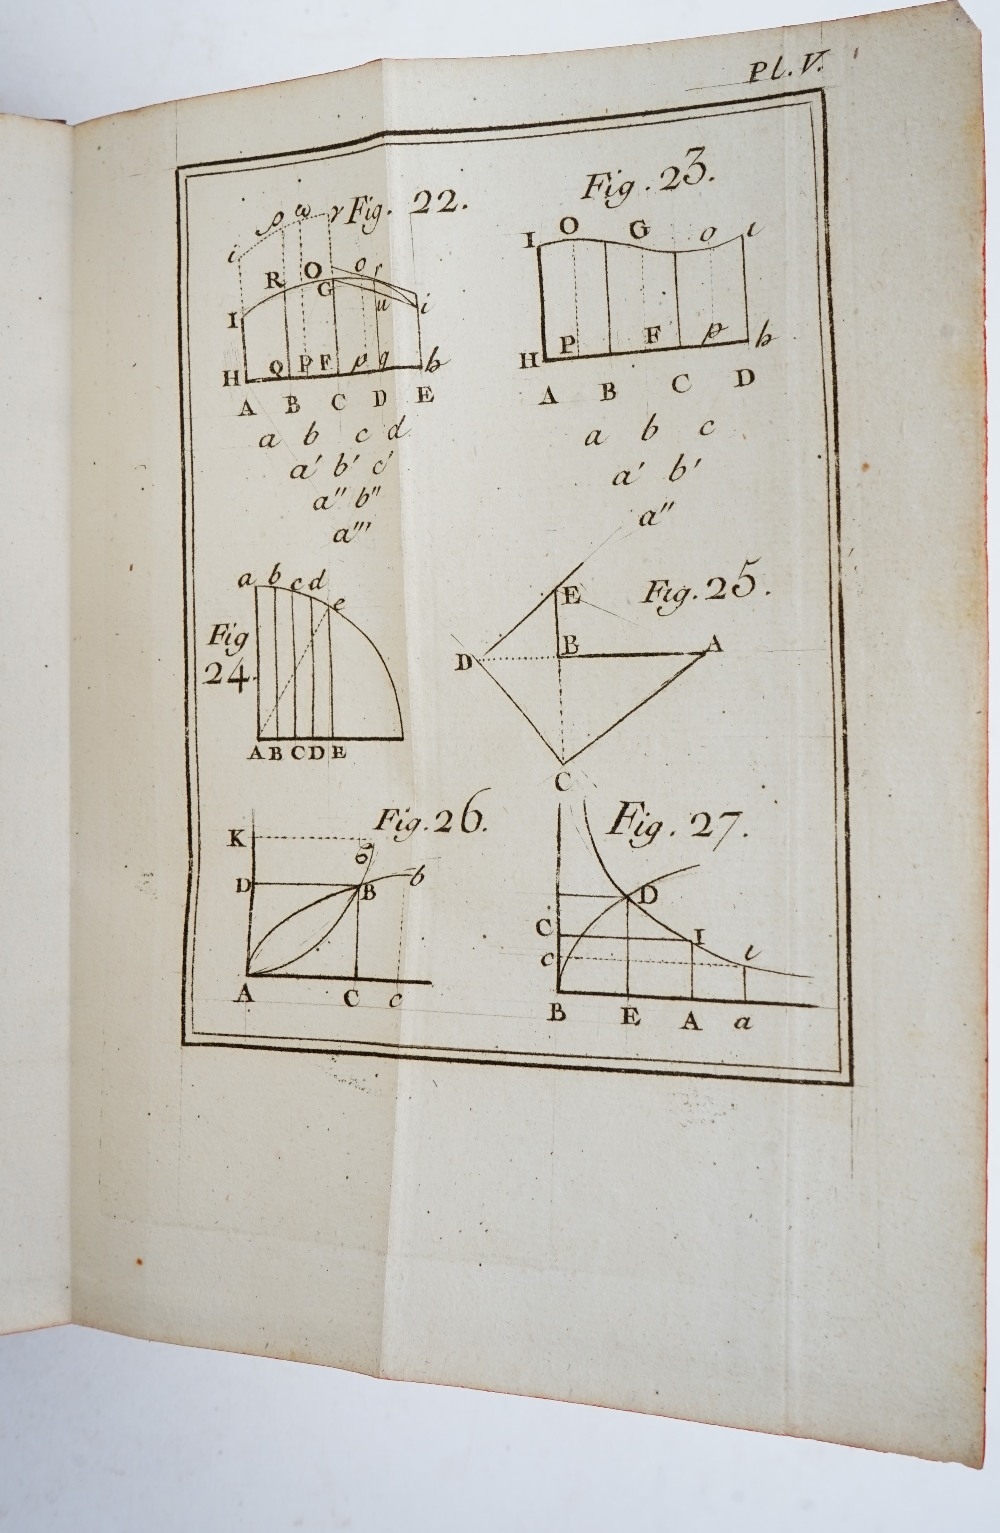 Pl. V.
Fig. 22.
i ρ ω γ
R O o r
G
I u i
H Q P F p q h
A B C D E
a b c d
a' b' c'
a'' b''
a'''
Fig. 23.
I O G o i
H P F p h
A B C D
a b c
a' b'
a''
Fig 24.
a b c d e
A B C D E
Fig. 25.
E
D B A
C
Fig. 26.
K
D B b
A C c
Fig. 27.
D
C I
c i
B E A a